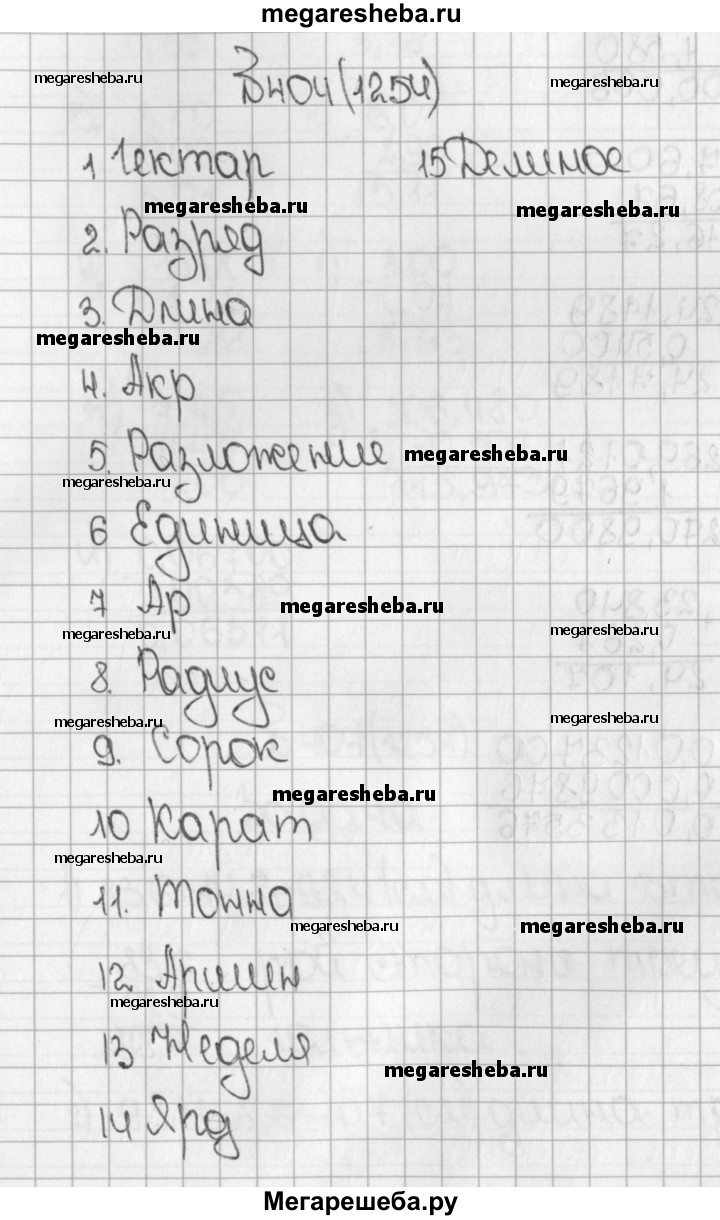 megaresheba.ru
В 404 (1254)
megaresheba.ru
megaresheba.ru
1 Гектар
15 Делимое
megaresheba.ru
megaresheba.ru
2. Разряд
3. Длина
megaresheba.ru
4. Акр
5. Разложение
megaresheba.ru
megaresheba.ru
6 Единица
7 Ар
megaresheba.ru
megaresheba.ru
megaresheba.ru
8. Радиус
megaresheba.ru
megaresheba.ru
9. Сорок
megaresheba.ru
10 Карат
megaresheba.ru
11. Тонна
megaresheba.ru
megaresheba.ru
12 Аршин
megaresheba.ru
13 Неделя
megaresheba.ru
14 Ярд
Мегарешеба.ру